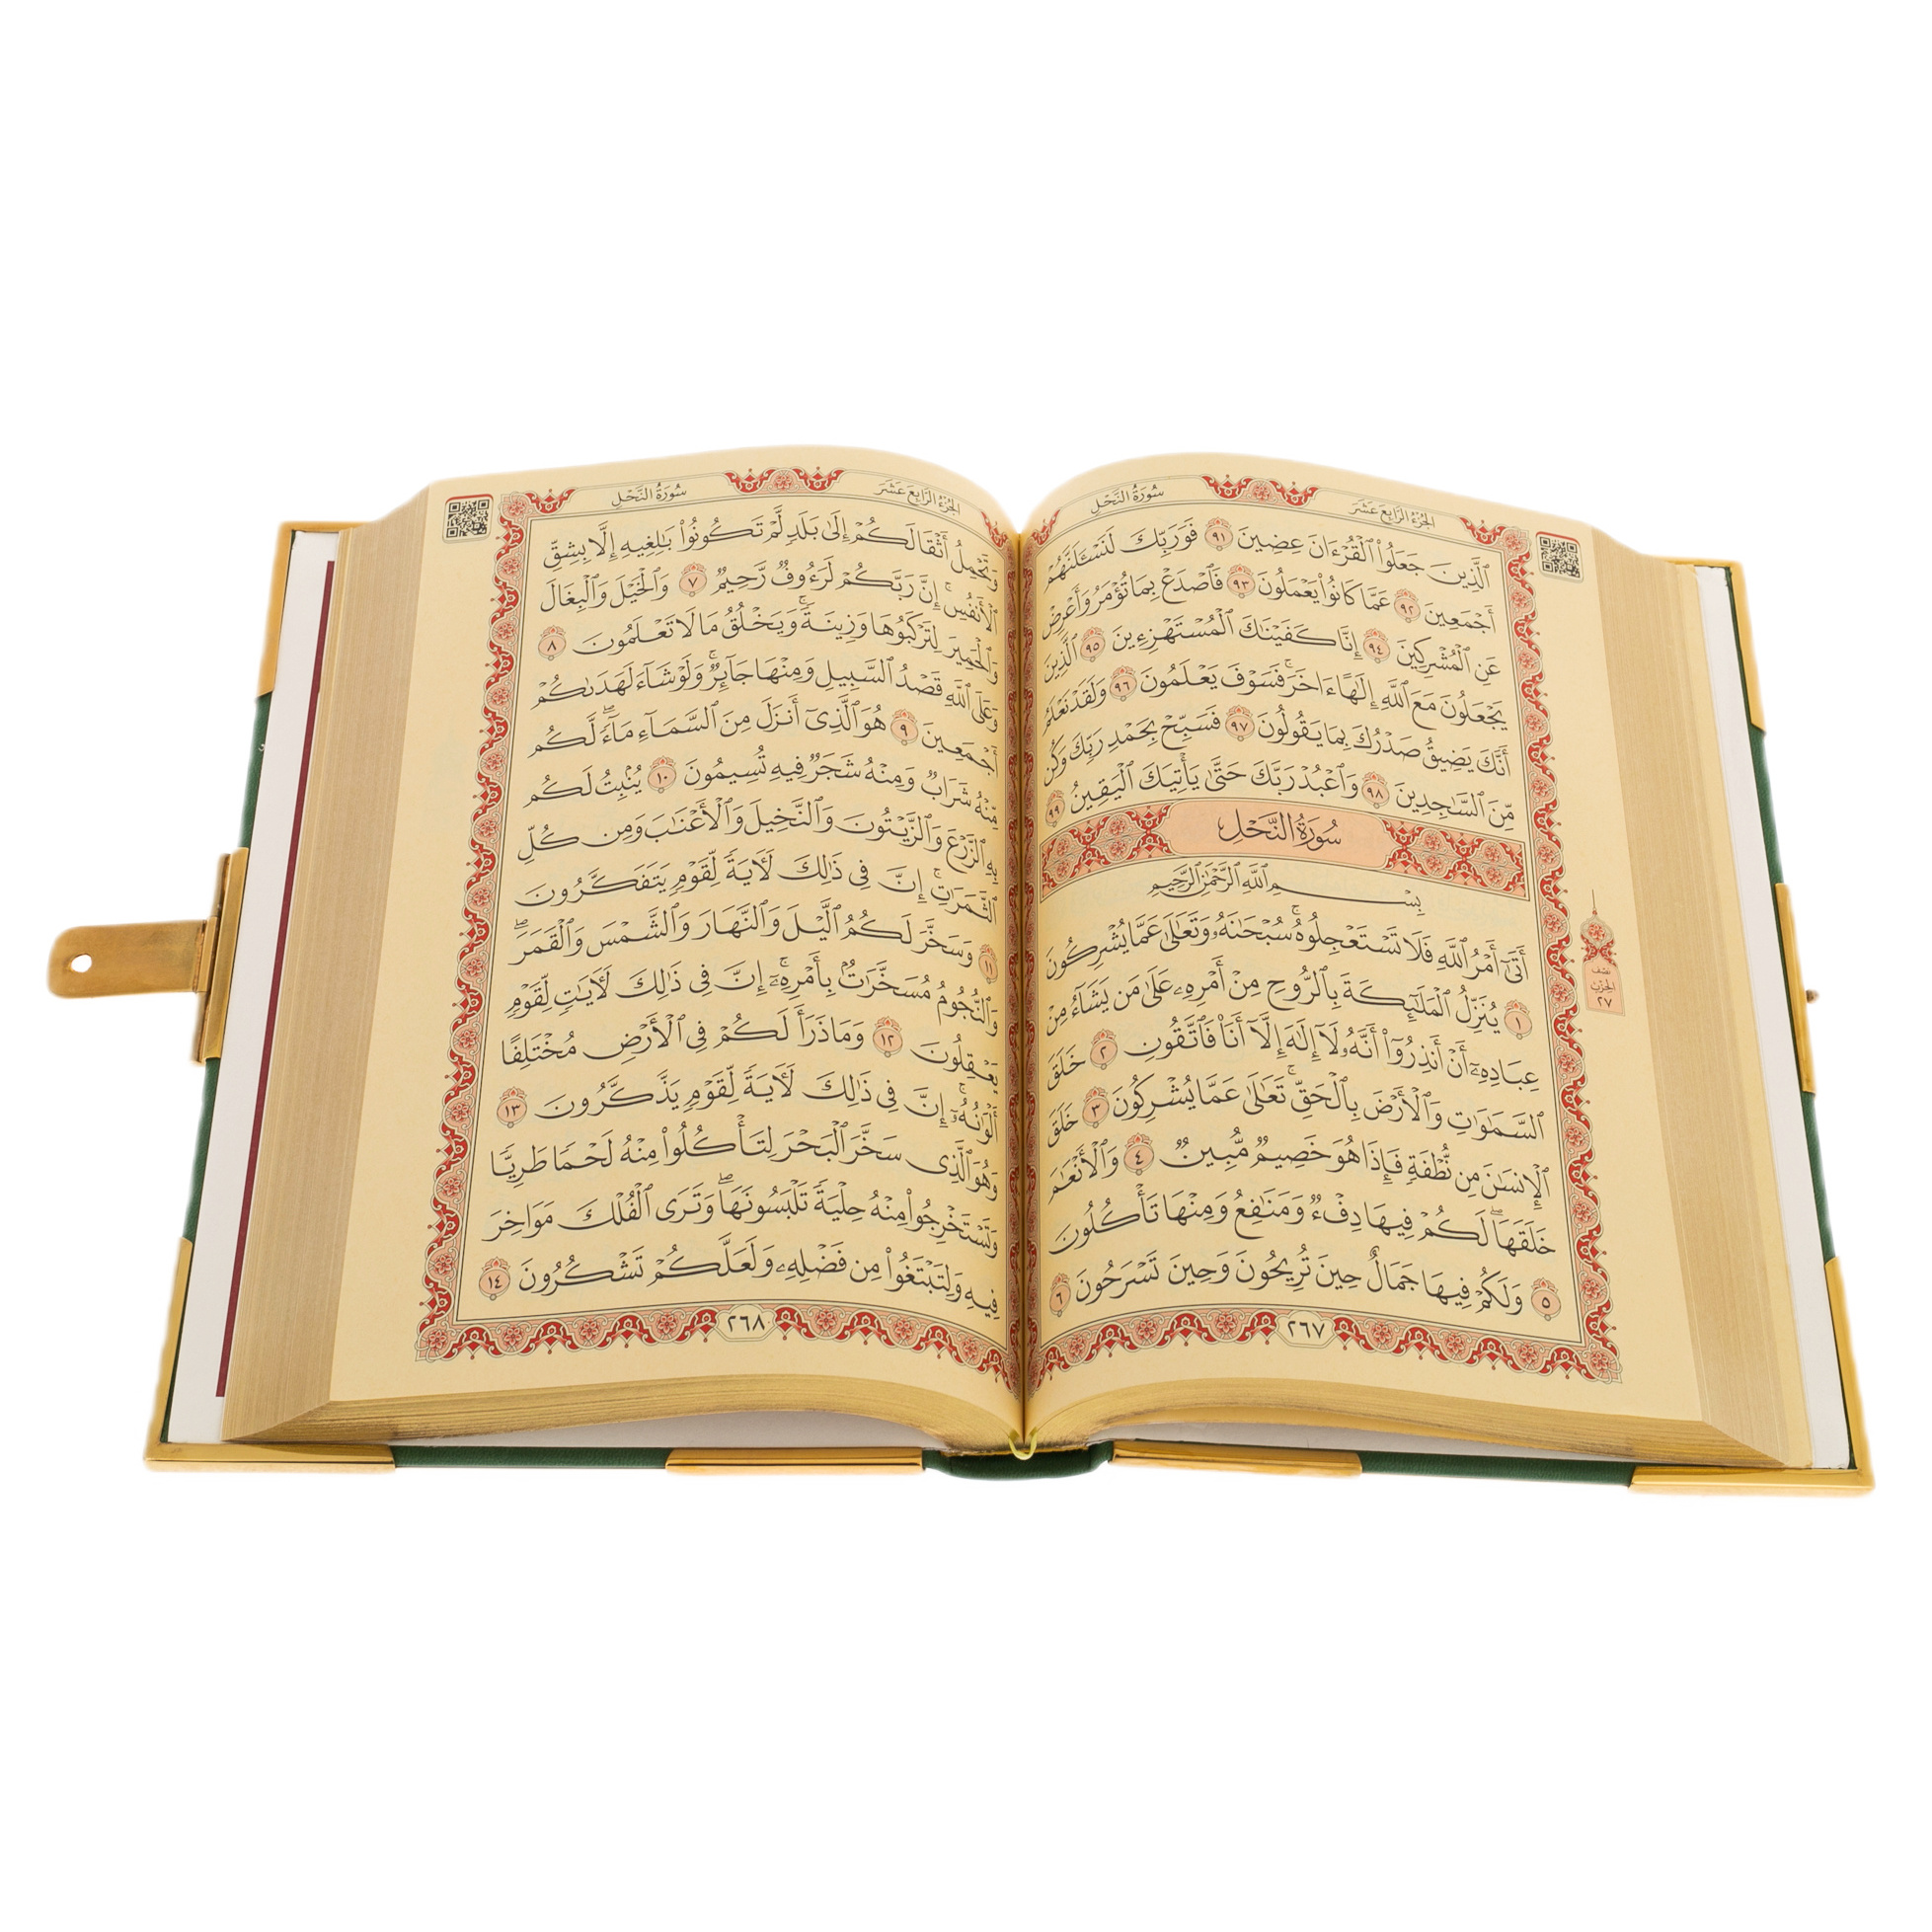 سُورَةُ النَّحْلِ الجُزْءُ الرَّابِعَ عَشَرَ
ٱلَّذِينَ جَعَلُوا۟ ٱلْقُرْءَانَ عِضِينَ ٩١ فَوَرَبِّكَ لَنَسْـَٔلَنَّهُمْ
أَجْمَعِينَ ٩٢ عَمَّا كَانُوا۟ يَعْمَلُونَ ٩٣ فَٱصْدَعْ بِمَا تُؤْمَرُ وَأَعْرِضْ
عَنِ ٱلْمُشْرِكِينَ ٩٤ إِنَّا كَفَيْنَٰكَ ٱلْمُسْتَهْزِءِينَ ٩٥ ٱلَّذِينَ
يَجْعَلُونَ مَعَ ٱللَّهِ إِلَٰهًا ءَاخَرَ ۚ فَسَوْفَ يَعْلَمُونَ ٩٦ وَلَقَدْ نَعْلَمُ
أَنَّكَ يَضِيقُ صَدْرُكَ بِمَا يَقُولُونَ ٩٧ فَسَبِّحْ بِحَمْدِ رَبِّكَ وَكُن
مِّنَ ٱلسَّٰجِدِينَ ٩٨ وَٱعْبُدْ رَبَّكَ حَتَّىٰ يَأْتِيَكَ ٱلْيَقِينُ ٩٩
سُورَةُ النَّحْلِ
بِسْمِ ٱللَّهِ ٱلرَّحْمَٰنِ ٱلرَّحِيمِ
أَتَىٰٓ أَمْرُ ٱللَّهِ فَلَا تَسْتَعْجِلُوهُ ۚ سُبْحَٰنَهُۥ وَتَعَٰلَىٰ عَمَّا يُشْرِكُونَ
١ يُنَزِّلُ ٱلْمَلَٰٓئِكَةَ بِٱلرُّوحِ مِنْ أَمْرِهِۦ عَلَىٰ مَن يَشَآءُ مِنْ
عِبَادِهِۦٓ أَنْ أَنذِرُوٓا۟ أَنَّهُۥ لَآ إِلَٰهَ إِلَّآ أَنَا۠ فَٱتَّقُونِ ٢ خَلَقَ
ٱلسَّمَٰوَٰتِ وَٱلْأَرْضَ بِٱلْحَقِّ ۚ تَعَٰلَىٰ عَمَّا يُشْرِكُونَ ٣ خَلَقَ
ٱلْإِنسَٰنَ مِن نُّطْفَةٍ فَإِذَا هُوَ خَصِيمٌ مُّبِينٌ ٤ وَٱلْأَنْعَٰمَ
خَلَقَهَا ۗ لَكُمْ فِيهَا دِفْءٌ وَمَنَٰفِعُ وَمِنْهَا تَأْكُلُونَ
٥ وَلَكُمْ فِيهَا جَمَالٌ حِينَ تُرِيحُونَ وَحِينَ تَسْرَحُونَ ٦
نِصْف
الحِزْب
٢٧
٢٦٧
سُورَةُ النَّحْلِ الجُزْءُ الرَّابِعَ عَشَرَ
وَتَحْمِلُ أَثْقَالَكُمْ إِلَىٰ بَلَدٍ لَّمْ تَكُونُوا۟ بَٰلِغِيهِ إِلَّا بِشِقِّ
ٱلْأَنفُسِ ۚ إِنَّ رَبَّكُمْ لَرَءُوفٌ رَّحِيمٌ ٧ وَٱلْخَيْلَ وَٱلْبِغَالَ
وَٱلْحَمِيرَ لِتَرْكَبُوهَا وَزِينَةً ۚ وَيَخْلُقُ مَا لَا تَعْلَمُونَ ٨
وَعَلَى ٱللَّهِ قَصْدُ ٱلسَّبِيلِ وَمِنْهَا جَآئِرٌ ۚ وَلَوْ شَآءَ لَهَدَىٰكُمْ
أَجْمَعِينَ ٩ هُوَ ٱلَّذِىٓ أَنزَلَ مِنَ ٱلسَّمَآءِ مَآءً ۖ لَّكُم
مِّنْهُ شَرَابٌ وَمِنْهُ شَجَرٌ فِيهِ تُسِيمُونَ ١٠ يُنۢبِتُ لَكُم
بِهِ ٱلزَّرْعَ وَٱلزَّيْتُونَ وَٱلنَّخِيلَ وَٱلْأَعْنَٰبَ وَمِن كُلِّ
ٱلثَّمَرَٰتِ ۗ إِنَّ فِى ذَٰلِكَ لَءَايَةً لِّقَوْمٍ يَتَفَكَّرُونَ
١١ وَسَخَّرَ لَكُمُ ٱلَّيْلَ وَٱلنَّهَارَ وَٱلشَّمْسَ وَٱلْقَمَرَ ۖ
وَٱلنُّجُومُ مُسَخَّرَٰتٌۢ بِأَمْرِهِۦٓ ۗ إِنَّ فِى ذَٰلِكَ لَءَايَٰتٍ لِّقَوْمٍ
يَعْقِلُونَ ١٢ وَمَا ذَرَأَ لَكُمْ فِى ٱلْأَرْضِ مُخْتَلِفًا
أَلْوَٰنُهُۥٓ ۗ إِنَّ فِى ذَٰلِكَ لَءَايَةً لِّقَوْمٍ يَذَّكَّرُونَ ١٣
وَهُوَ ٱلَّذِى سَخَّرَ ٱلْبَحْرَ لِتَأْكُلُوا۟ مِنْهُ لَحْمًا طَرِيًّا
وَتَسْتَخْرِجُوا۟ مِنْهُ حِلْيَةً تَلْبَسُونَهَا ۖ وَتَرَى ٱلْفُلْكَ مَوَاخِرَ
فِيهِ وَلِتَبْتَغُوا۟ مِن فَضْلِهِۦ وَلَعَلَّكُمْ تَشْكُرُونَ ١٤
٢٦٨